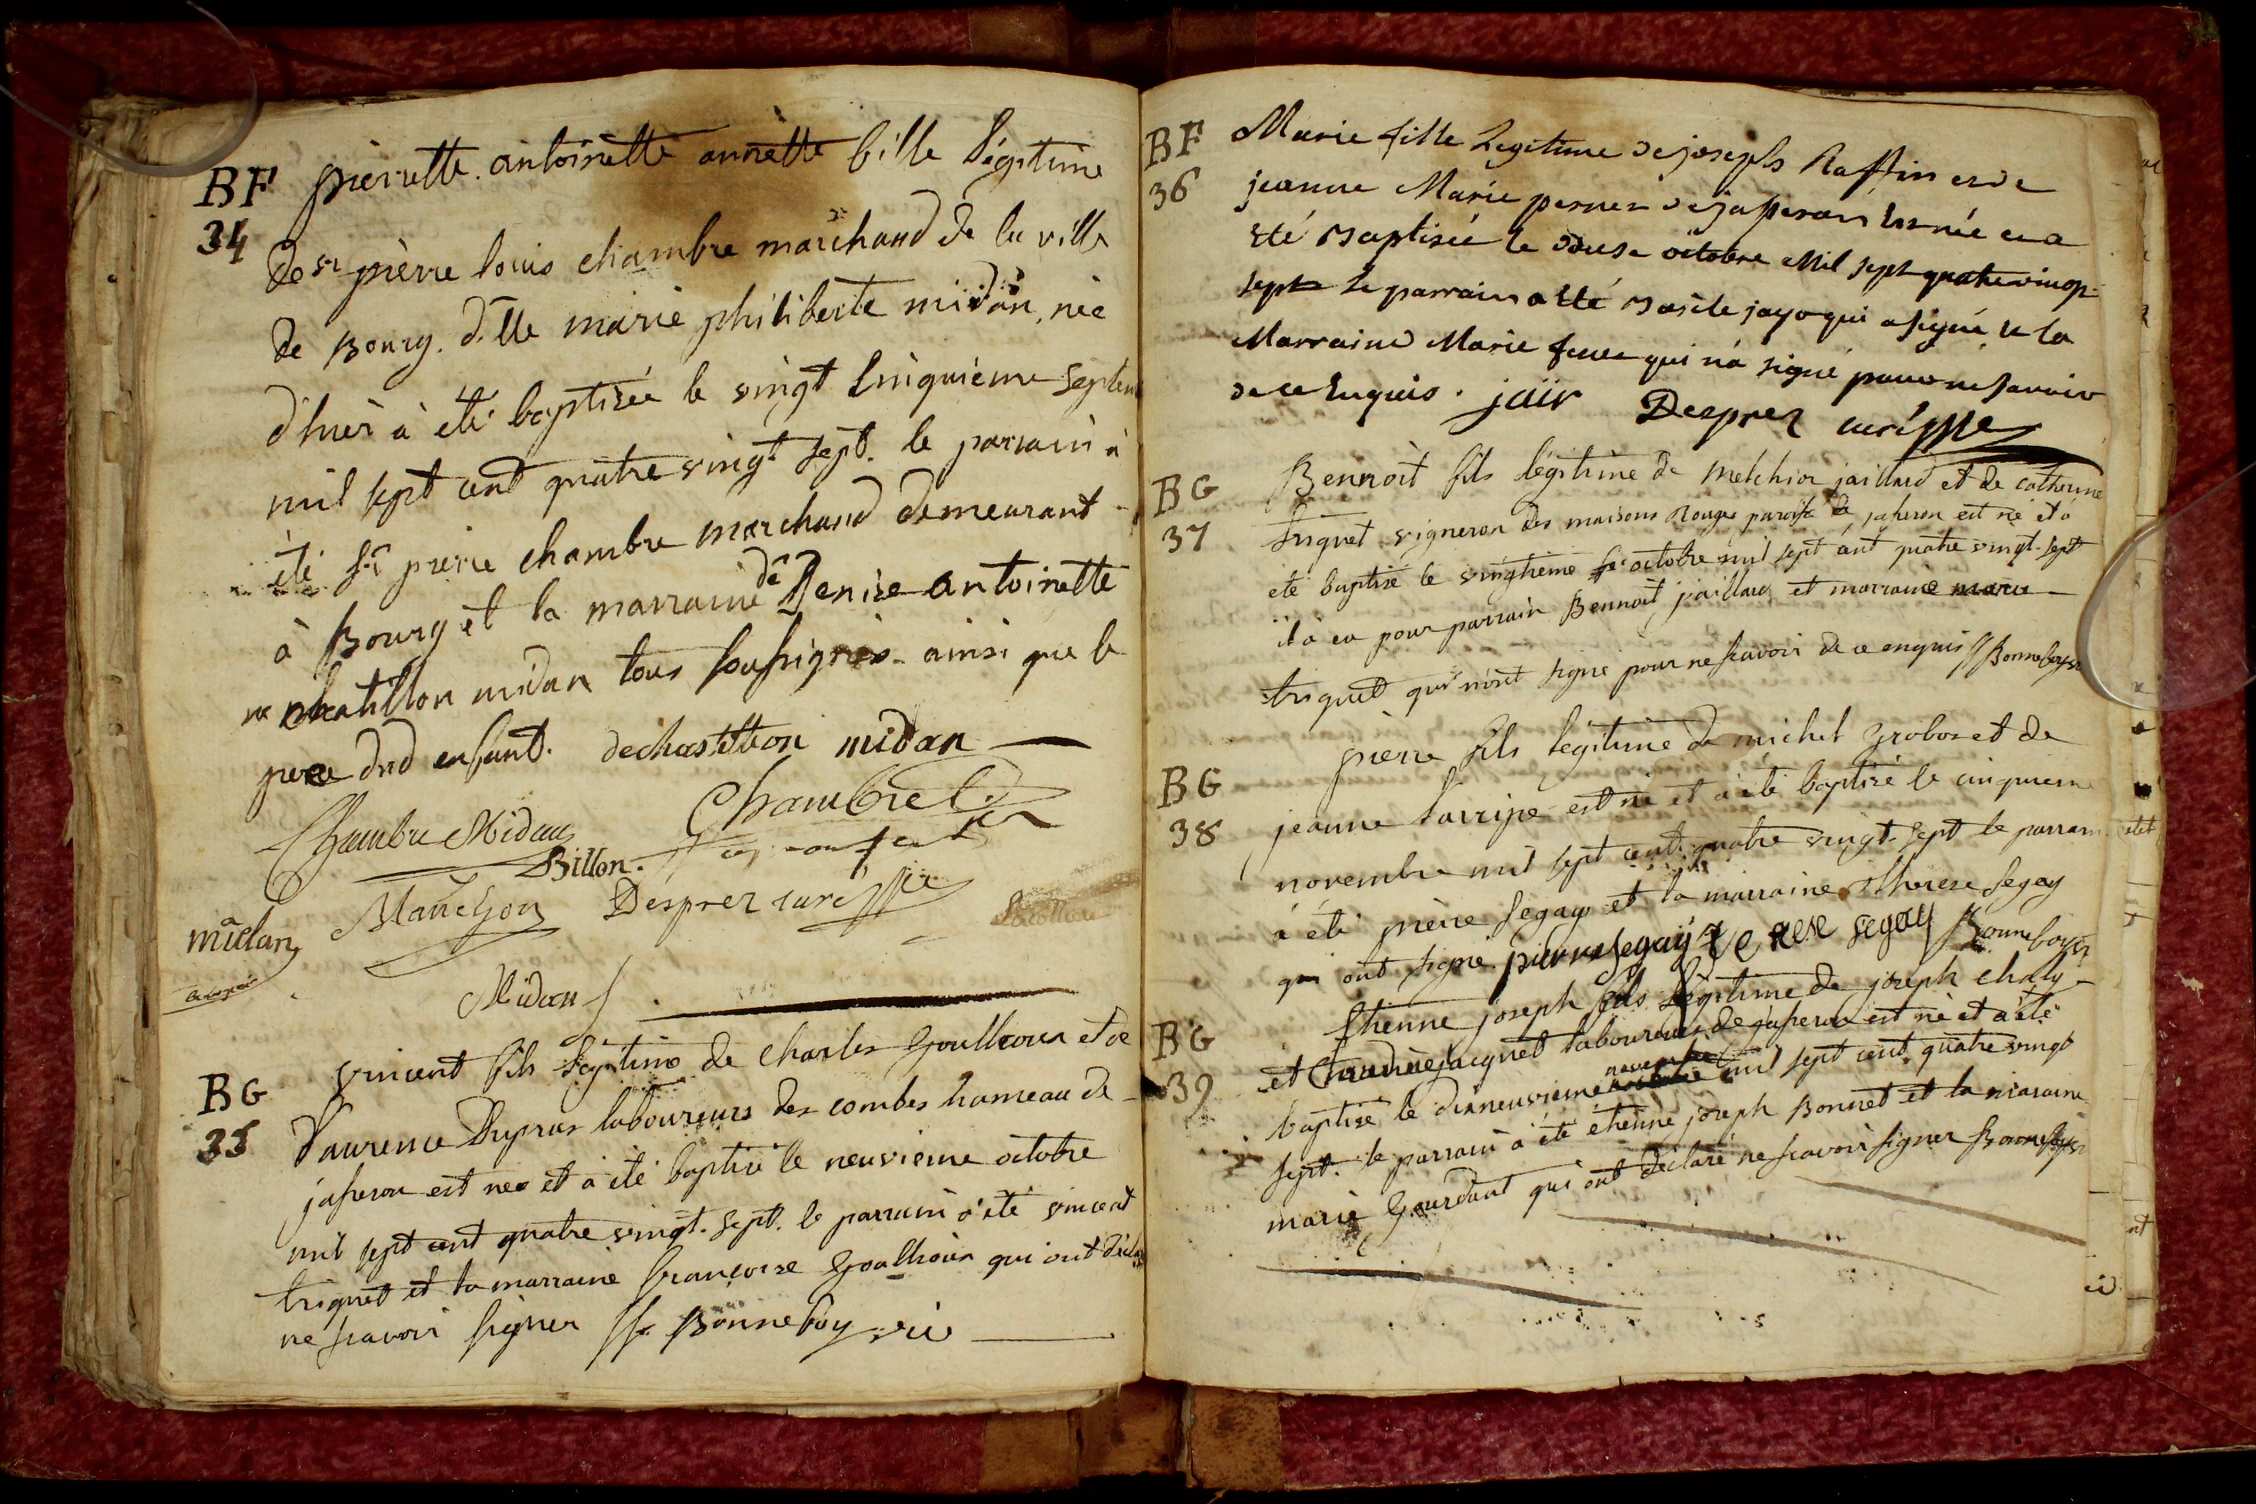 BF
34
pierrette antoinette annette fille légitime
de sr pièrre louis chambre marchand de la ville
de Bourg. d.lle marie philiberte midan, née
d'hièr à été baptisée le vingt cinquième septem
mil sept cent quatre vingt sept. le parrain à
été sr pierre chambre marchand demeurant
à Bourg et la marraine de Denise antoinette
chatillon midan tous soussignés ainsi que le
pere dud enfant. dechastillon midan
Chambre Midan
Chambre
Billon
Manchon
Desprez curé
midan
Midan
BG
35
vincent fils légitime de Charles Goulloux et de
Laurence Dupras laboureurs des combes hameau de
jasseron est née et à été baptisé le neuvieme octobre
mil sept cent quatre vingt. sept. le parrain à été vincent
triquet et la marraine françoise qui ont décla
ne scavoir signer Bonnefoy vic
BF
36
Marie fille Legitime de joseph Raffin et de
jeanne Marie perner de jasseron est née et a
été Baptisée le douse octobre Mil sept quatre vingt
sept Le parrain a été Basile jayr qui a signé et la
Marraine Marie qui n'a signé pour ne savoir
de ce Enquis. jaÿr Desprez curé
BG
37
Bennoit fils légitime de Melchior jaillard et de catherine
triquet vigneron des maisons Rouges paroisse de jasseron est né et à
été baptisé le vingtieme octobre mil sept cent quatre vingt. sept
il à eu pour parrain Bennoit jaillard et marraine marie
triquet qui n'ont signé pour ne scavoir de ce enquis Bonnefoy
BG
38
pièrre fils légitime de michel Grobos et de
jeanne est né et à été baptisé le cinquiem
novembre mil sept cent quatre vingt. sept le parrain
à été pièrre segay et la marraine therese segay
qui ont signé. pierre segaÿ terese segay Bonnefoy
BG
39
Etienne joseph fils légitime de joseph chaty
et Claudine jacquet laboureurs de jasseron est né et à été
baptisé le dixneuvieme novembre mil sept cent quatre vingt
sept. le parrain à été étienne joseph Bonnet et la maraine
marie Gourdant qui ont déclaré ne scavoir signer Bonnefoy